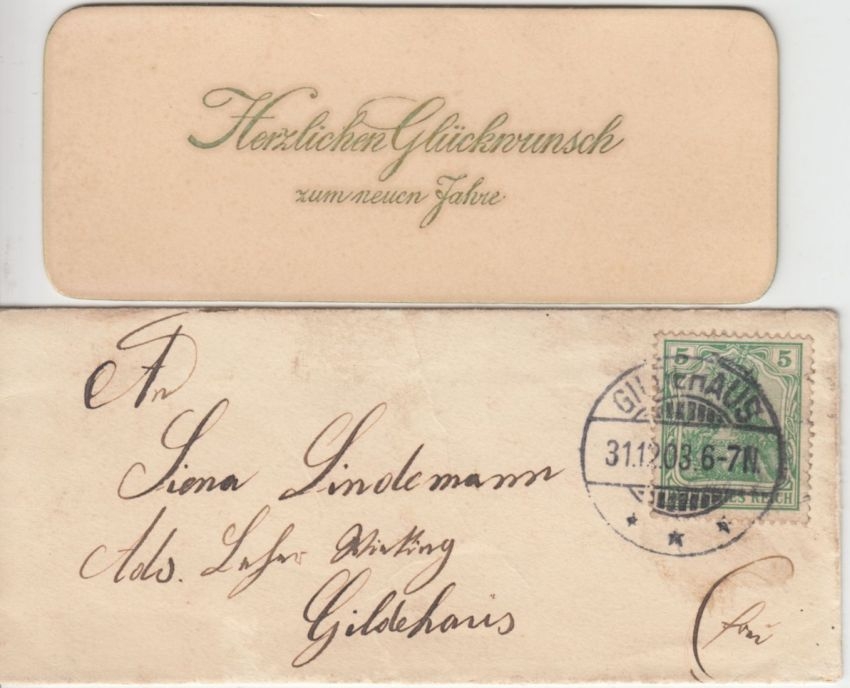 Herzlichen Glückwunsch
zum neuen Jahre
5 5
GILDEHAUS
31.12.08.6-7N.
REICH
An
Siena Lindemann
Adr. Lehrer Wieking
Gildehaus